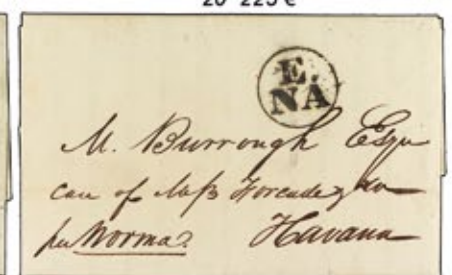 20 225 €
E.
NA
M. Burrough Esqr
care of Mess Forcade y Co
per Norma. Havana